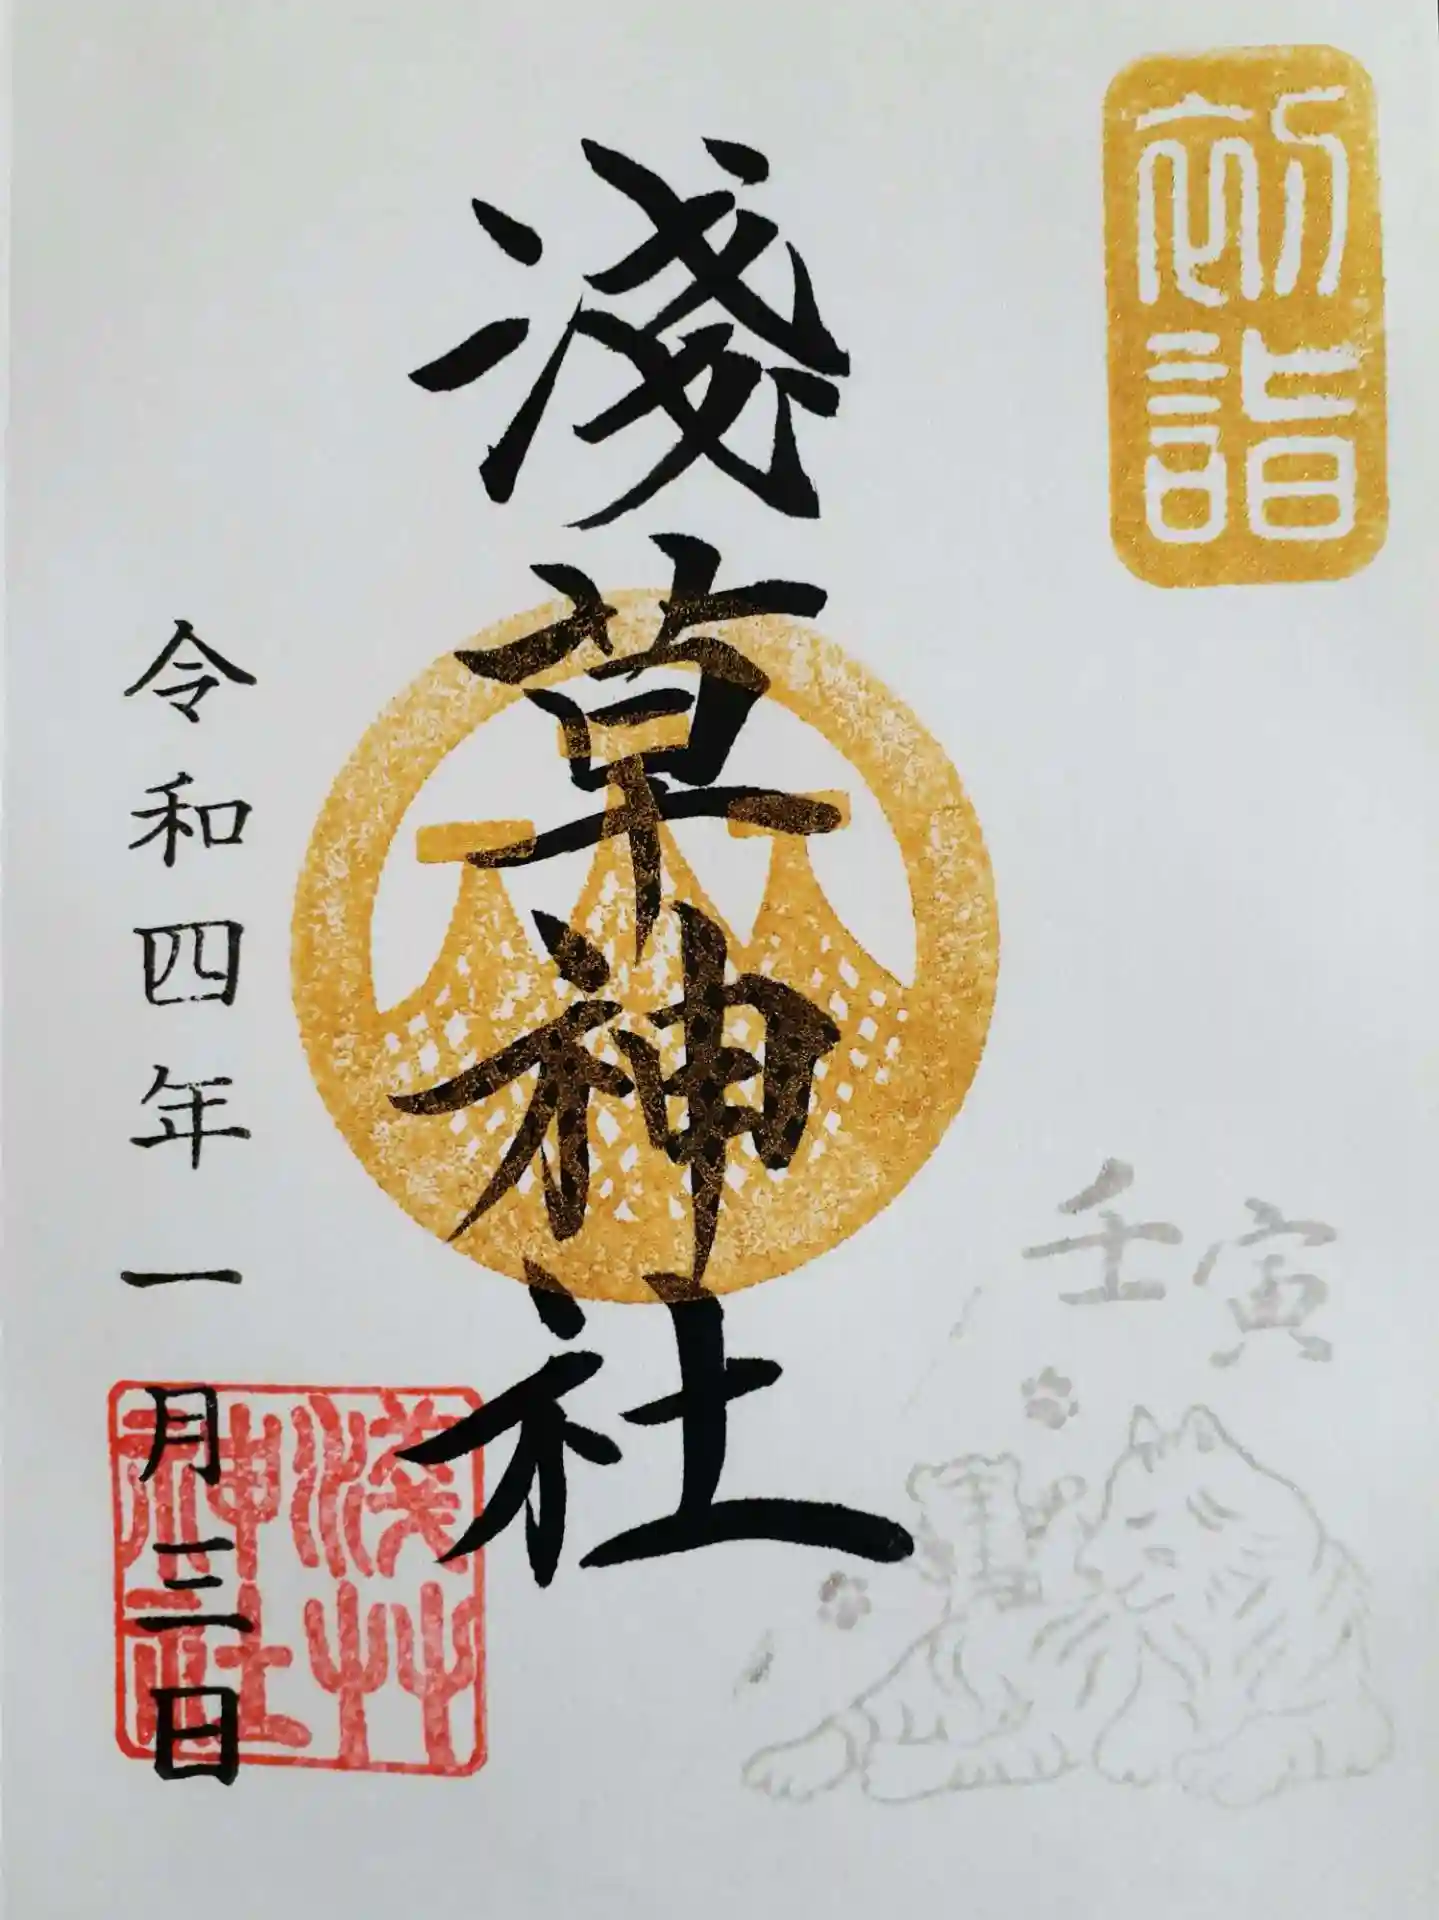 初詣
淺草神社
令和四年一月三日
壬寅
淺艸神社